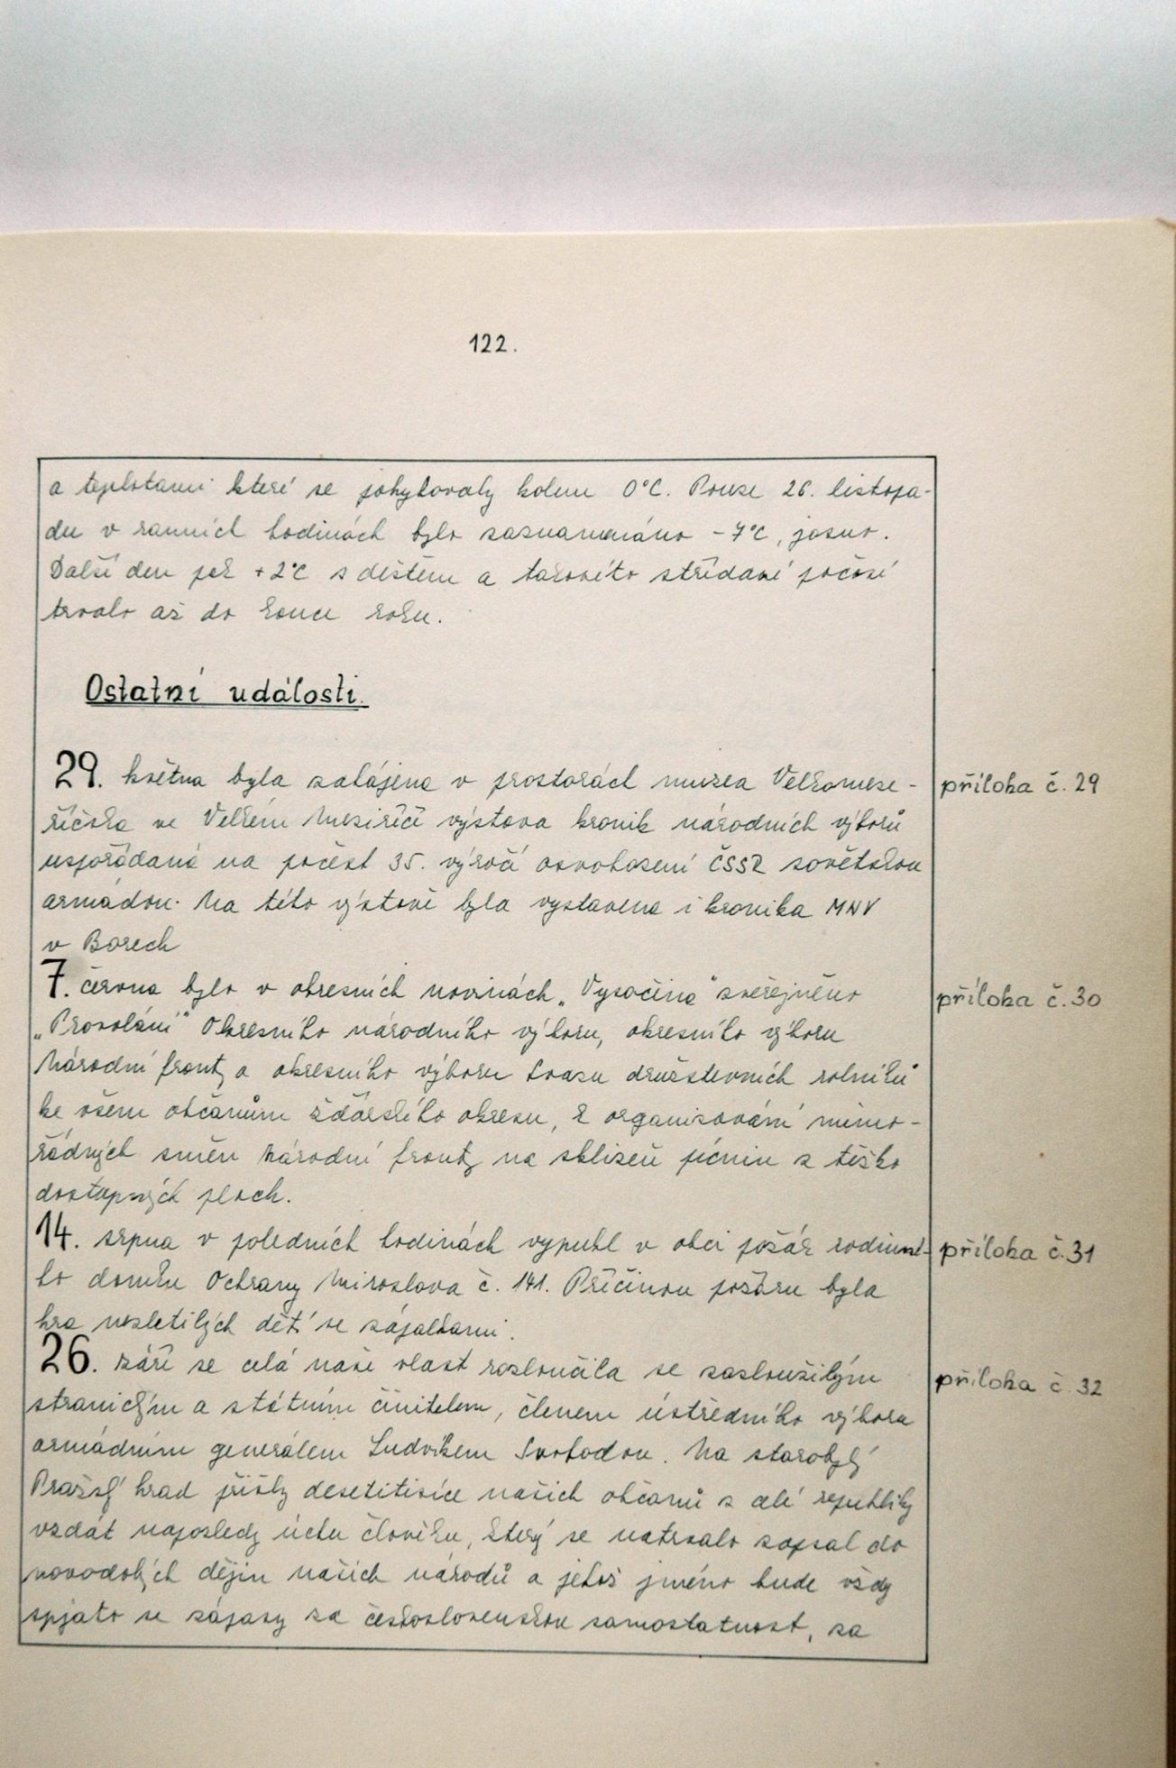 122.
a teplotami které se pohybovaly kolem 0°C. Pouze 26. listopa-
du v ranních hodinách bylo zaznamenáno -7°C, jasno.
Další den pak +2°C s deštěm a takovéto střídavé počasí
trvalo až do konce roku.
Ostatní události.
29. května byla zahájena v prostorách muzea Velkomeze- příloha č. 29
říčska ve Velkém Meziříčí výstava kronik národních výborů
uspořádaná na počest 35. výročí osvobození ČSSR sovětskou
armádou. Na této výstavě byla vystavena i kronika MNV
v Borech
7. června bylo v okresních novinách „Vysočina" zveřejněno příloha č. 30
„Provolání" Okresního národního výboru, okresního výboru
Národní fronty a okresního výboru Svazu družstevních rolníků
ke všem občanům žďárského okresu, k organizování mimo-
řádných směn Národní fronty na sklizeň pícnin z těžko
dostupných ploch.
14. srpna v poledních hodinách vypukl v obci požár rodinné- příloha č. 31
ho domku Ochrany Miroslava č. 141. Příčinou požáru byla
hra nezletilých dětí se zápalkami.
26. září se celá naše vlast rozloučila se zasloužilým příloha č. 32
stranickým a státním činitelem, členem ústředního výboru
armádním generálem Ludvíkem Svobodou. Na starobylý
Pražský hrad přišly desetitisíce našich občanů z celé republiky
vzdát naposledy úctu člověku, který se natrvalo zapsal do
novodobých dějin našich národů a jehož jméno bude vždy
spjato se zápasy za československou samostatnost, za